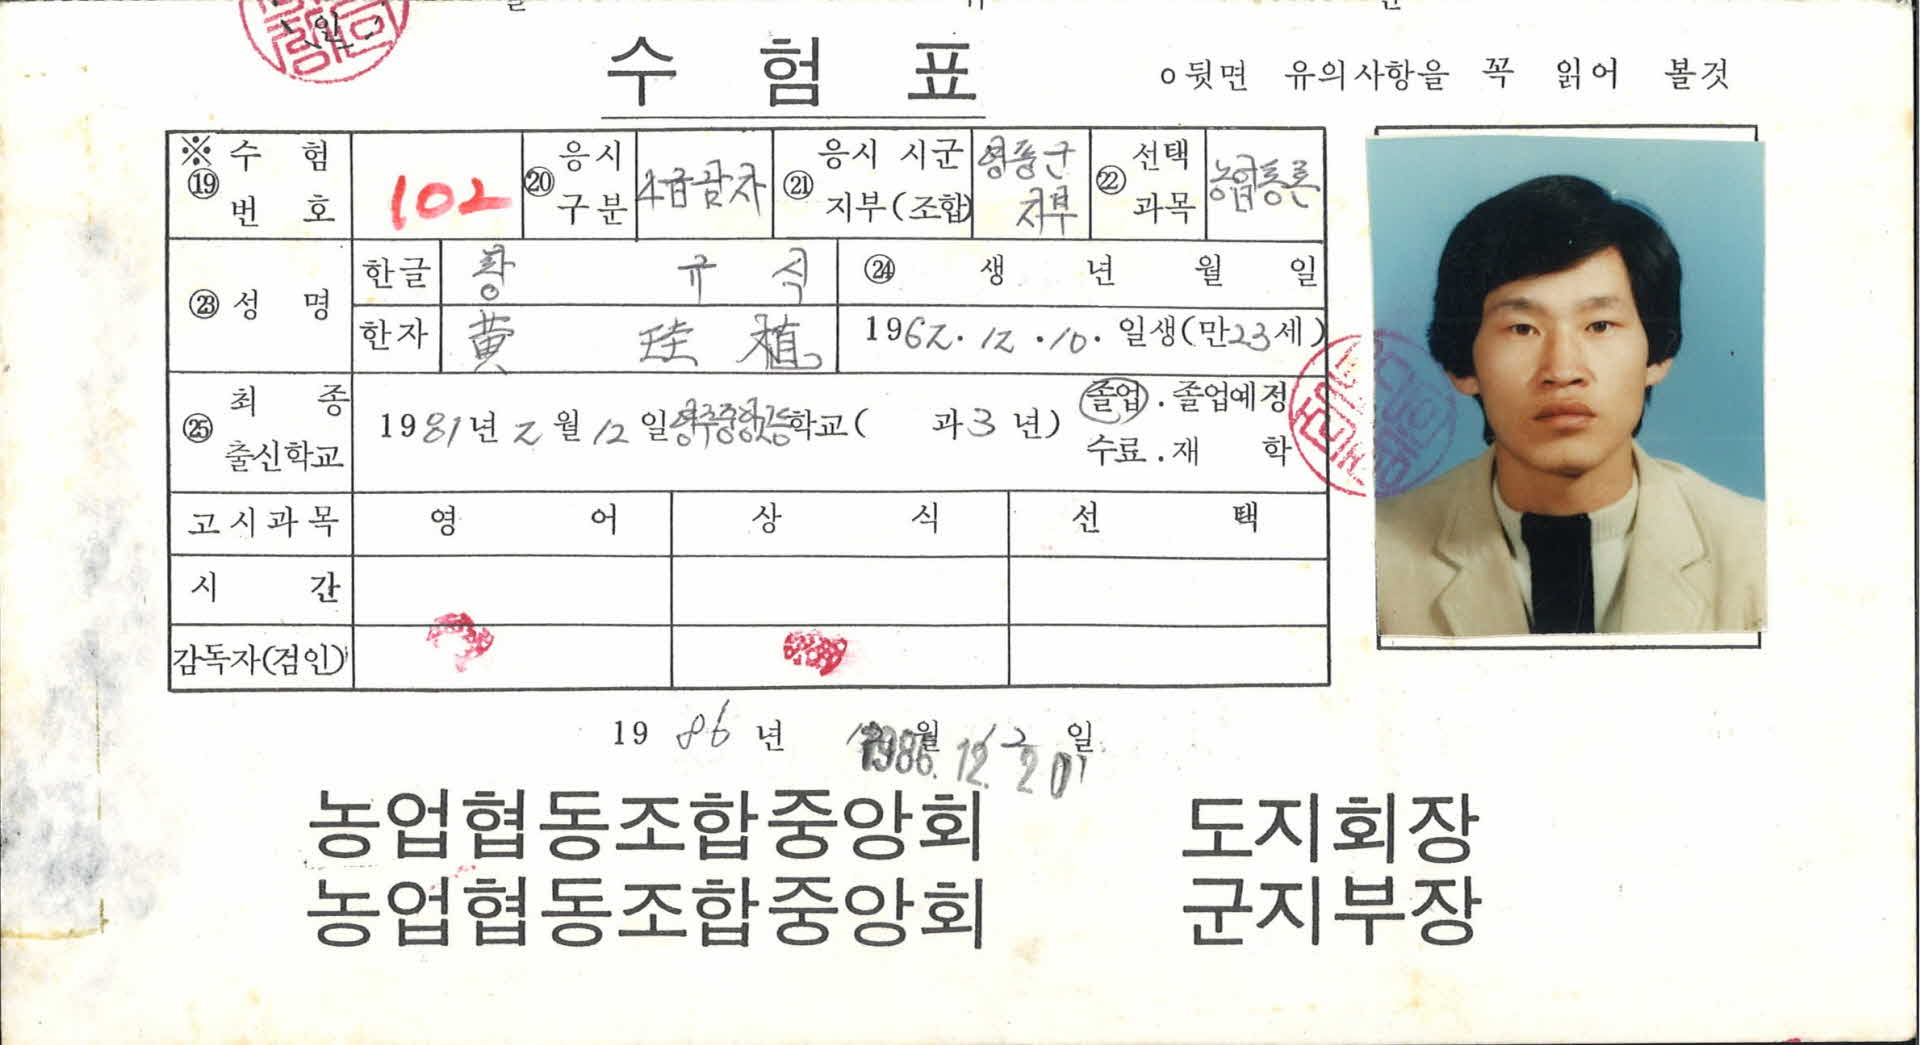 수 험 표
o 뒷면 유의사항을 꼭 읽어 볼것
※ ⑲ 수험번호 102 ⑳ 응시구분 4급감자 ㉑ 응시 시군지부(조합) 영풍군지부 ㉒ 선택과목 농업통론
㉓ 성명 한글 황 규 식 ㉔ 생 년 월 일
한자 黃 珪 植 1962. 12. 10. 일생(만23세)
㉕ 최종출신학교 1981년 2월 12일 영주중앙고등학교( 과3년) 졸업 . 졸업예정
수료 . 재 학
고시과목 영 어 상 식 선 택
시 간
감독자(검인)
19 86 년 월 12 일
1986. 12. 20
농업협동조합중앙회 도지회장
농업협동조합중앙회 군지부장